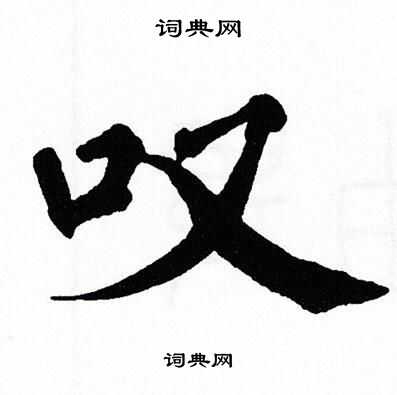 词典网
叹
词典网